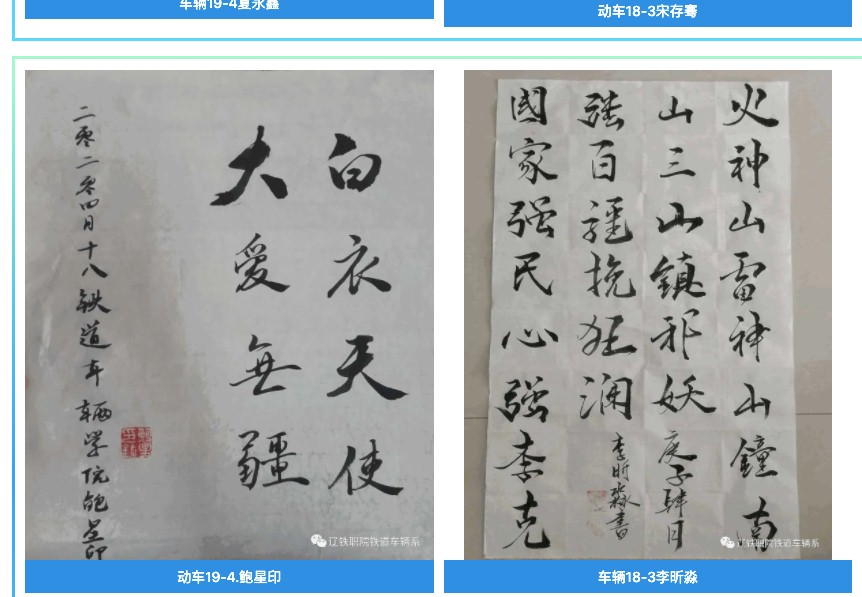 车辆19-4夏永鑫
动车18-3宋存骞
白衣天使
大愛無疆
二零二零四月十八鉄道车辆学院鲍星印
辽铁职院铁道车辆系
动车19-4.鲍星印
火神山雷神山鐘南
山三山鎮邪妖
庚子肆月
强百疆挽狂澜
李昕淼書
國家强民心强李克
辽铁职院铁道车辆系
车辆18-3李昕淼